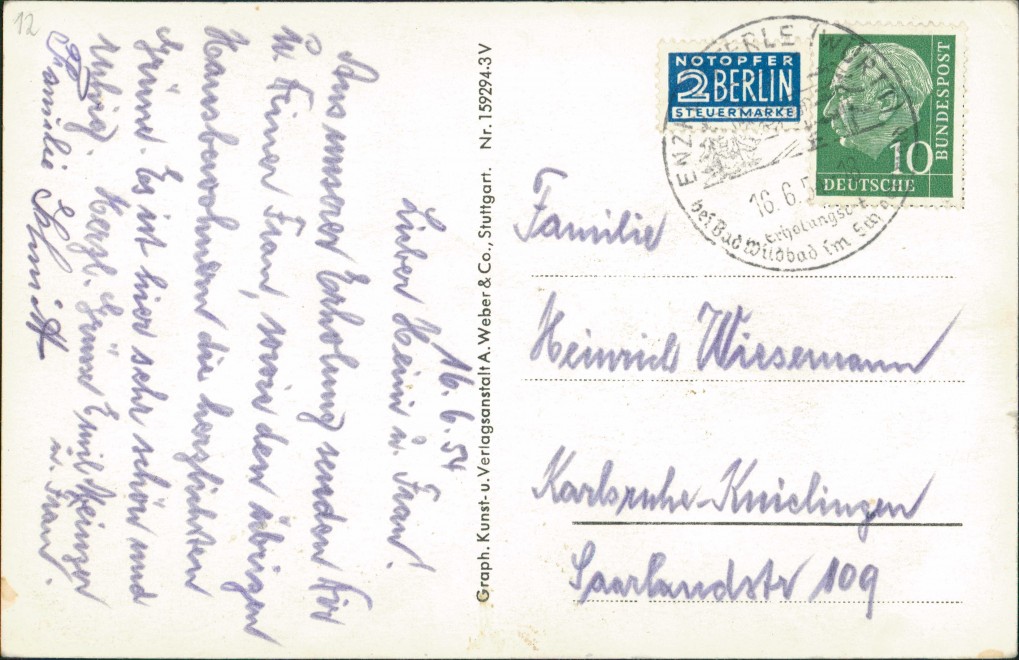 12
16.6.54
Lieber Heini u. Frau!
Aus unserer Erholung senden Wir
Dir u. Deiner Frau, sowie den übrigen
Hausbewohnern die herzlichsten
Grüsse. Es ist hier sehr schön und
ruhig. Herzl. Grüsse Emil
u. Frau.
Familie Schmitt
Graph. Kunst- u. Verlagsanstalt A. Weber & Co., Stuttgart. Nr. 159294-3V
NOTOPFER
2 BERLIN
STEUERMARKE
DEUTSCHE BUNDESPOST
10
(WÜRTT)
16.6.5
Erholungsort
bei Bad Wildbad im
Familie
Heinrich Wiesemann
Karlsruhe-Knielingen
Saarlandstr 109